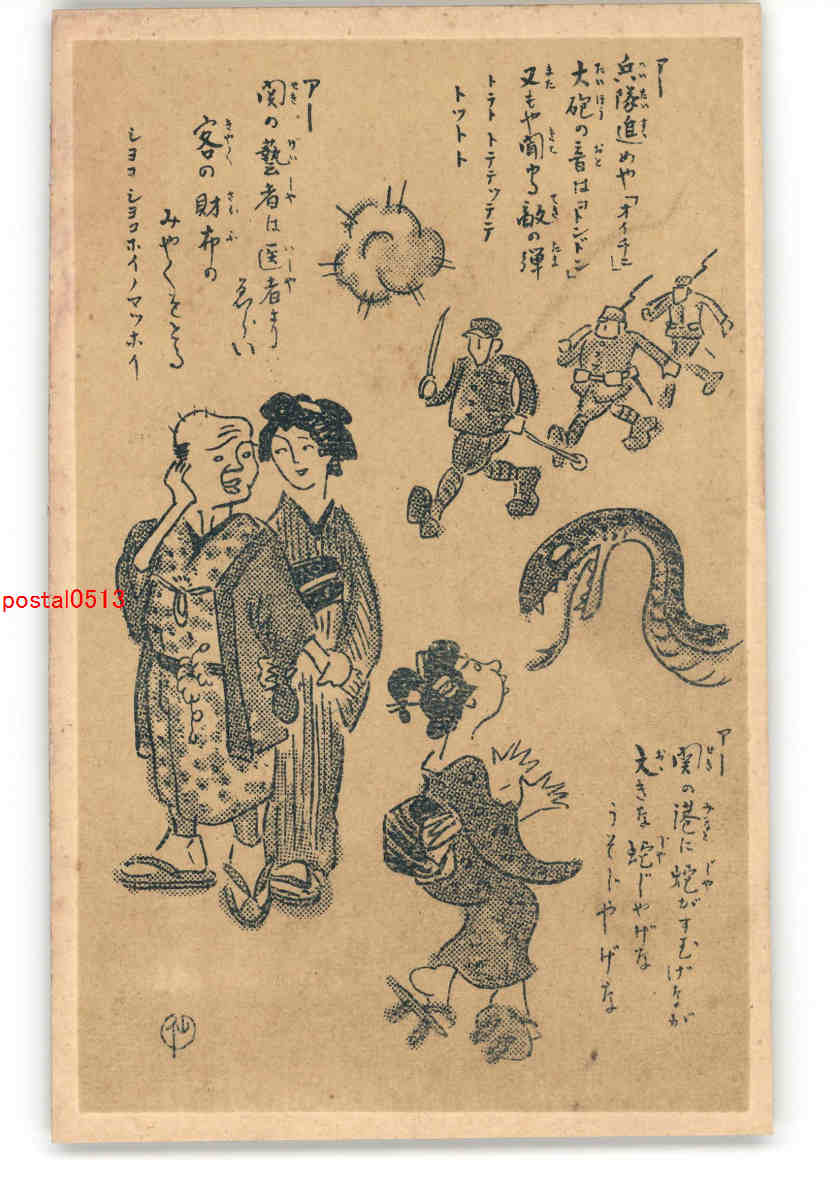 アー
兵隊進めや「オイチニ」
大砲の音は「ドンドン」
又もや聞ゆ敵の弾
トテト トテテッテテ
トツトト
アー
関の藝者は医者より
ゑらい
客の財布の
みやくをとる
シヨコ シヨコホイノマツホイ
アー
関の港に蛇がすむげなが
大きな蛇じやげな
うそじやげな
postal0513